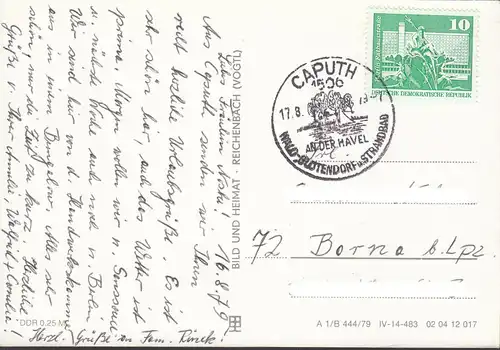 16.8.79
Liebes Fräulein Nosta!
Aus Caputh senden wir Ihnen
recht herzliche Urlaubsgrüße. Es ist
sehr schön hier, auch das Wetter ist
prima. Morgen wollen wir n. Sanssouci
u. nächste Woche auch noch n. Berlin.
Wir sind hier von d. Handwerkskammer
aus in einem Bungalow. Alles sehr
schön, nur die Zeit zu kurz. Herzliche
Grüße v. Ihrer Annelie, Wolfgid +
Herzl. Grüße an Fam.
BILD UND HEIMAT · REICHENBACH (VOGTL)
DDR 0,25 M
10
DEUTSCHE DEMOKRATISCHE REPUBLIK
CAPUTH
1506
17.8.
AN DER HAVEL
WALD-BLÜTENDORF u. STRANDBAD
72 Borna b. Lpz.
A 1/B 444/79 IV-14-483 02 04 12 017